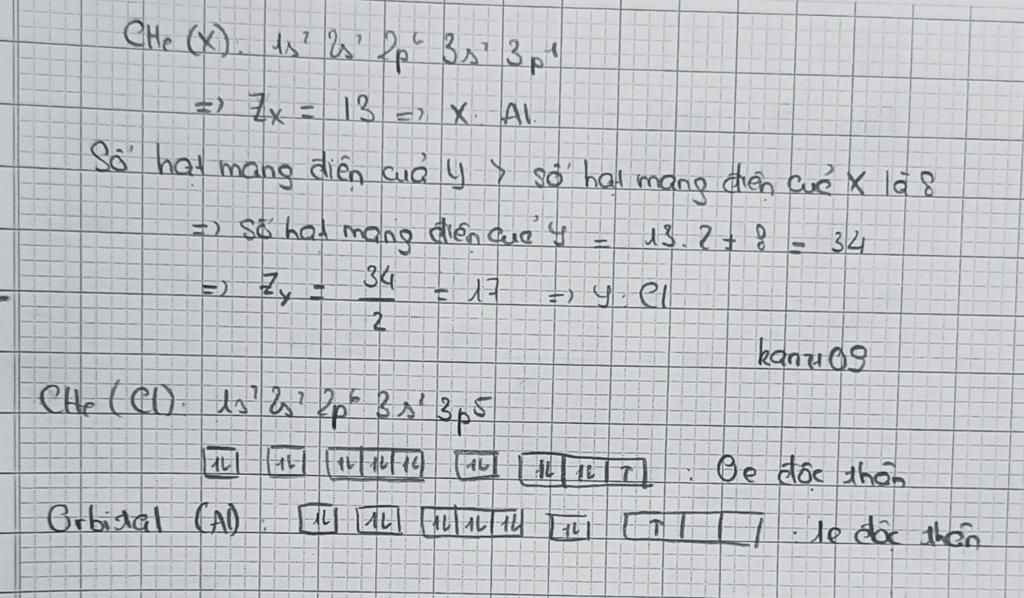 CHe (X): 1s² 2s² 2p⁶ 3s² 3p¹
=> Zx = 13 => X: Al.
Số hạt mang điện của Y > số hạt mang điện của X là 8
=> số hạt mang điện của Y = 13.2 + 8 = 34
=> Zy = 34/2 = 17 => Y: Cl
kanzu09
CHe (Cl): 1s² 2s² 2p⁶ 3s² 3p⁵
↑↓ ↑↓ ↑↓ ↑↓ ↑↓ ↑↓ ↑↓ ↑↓ ↑ : 0e độc thân
Orbidal (Al): ↑↓ ↑↓ ↑↓ ↑↓ ↑↓ ↑↓ ↑ : 1e độc thân